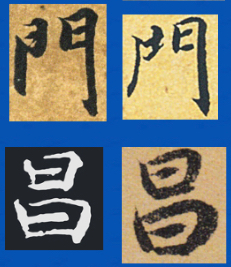 門 門
昌 昌